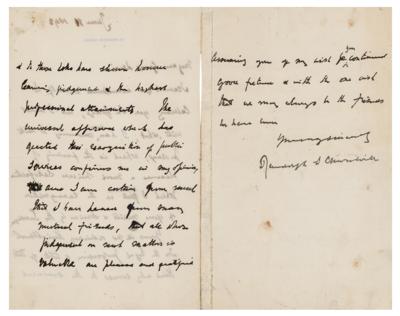 & to those who have shown
learning, judgement & the highest
professional attainments. The
universal approval which has
greeted this recognition of public
Services confirms me in my opinion,
and I am certain from
that I have heard from many
mutual friends, that all whose
judgement on such matters is
valuable are pleased and gratified
Assuring you of my wish for continued
good fortune & with the one wish
that we may always be the friends
we have been
Yours sincerely
Randolph S. Churchill